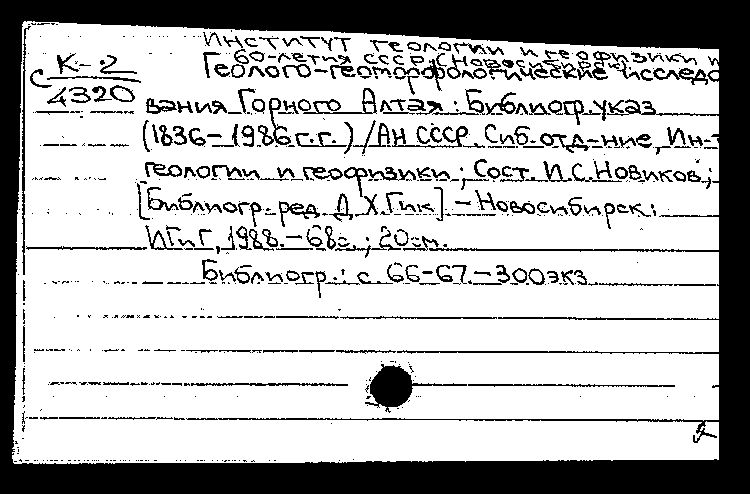 Институт геологии и геофизики и
60-летия СССР (Новосибирск)
К-2
Геолого-геоморфологические исследо
с
4320
вания Горного Алтая: Библиогр. указ
(1836-1986 г.г.) / АН СССР. Сиб. отд-ние, Ин-т
геологии и геофизики; Сост. И.С. Новиков;
[Библиогр. ред. Д.Х. Гик] - Новосибирск:
ИГиГ, 1988. - 68 с.; 20 см.
Библиогр.: с. 66-67. - 300 экз